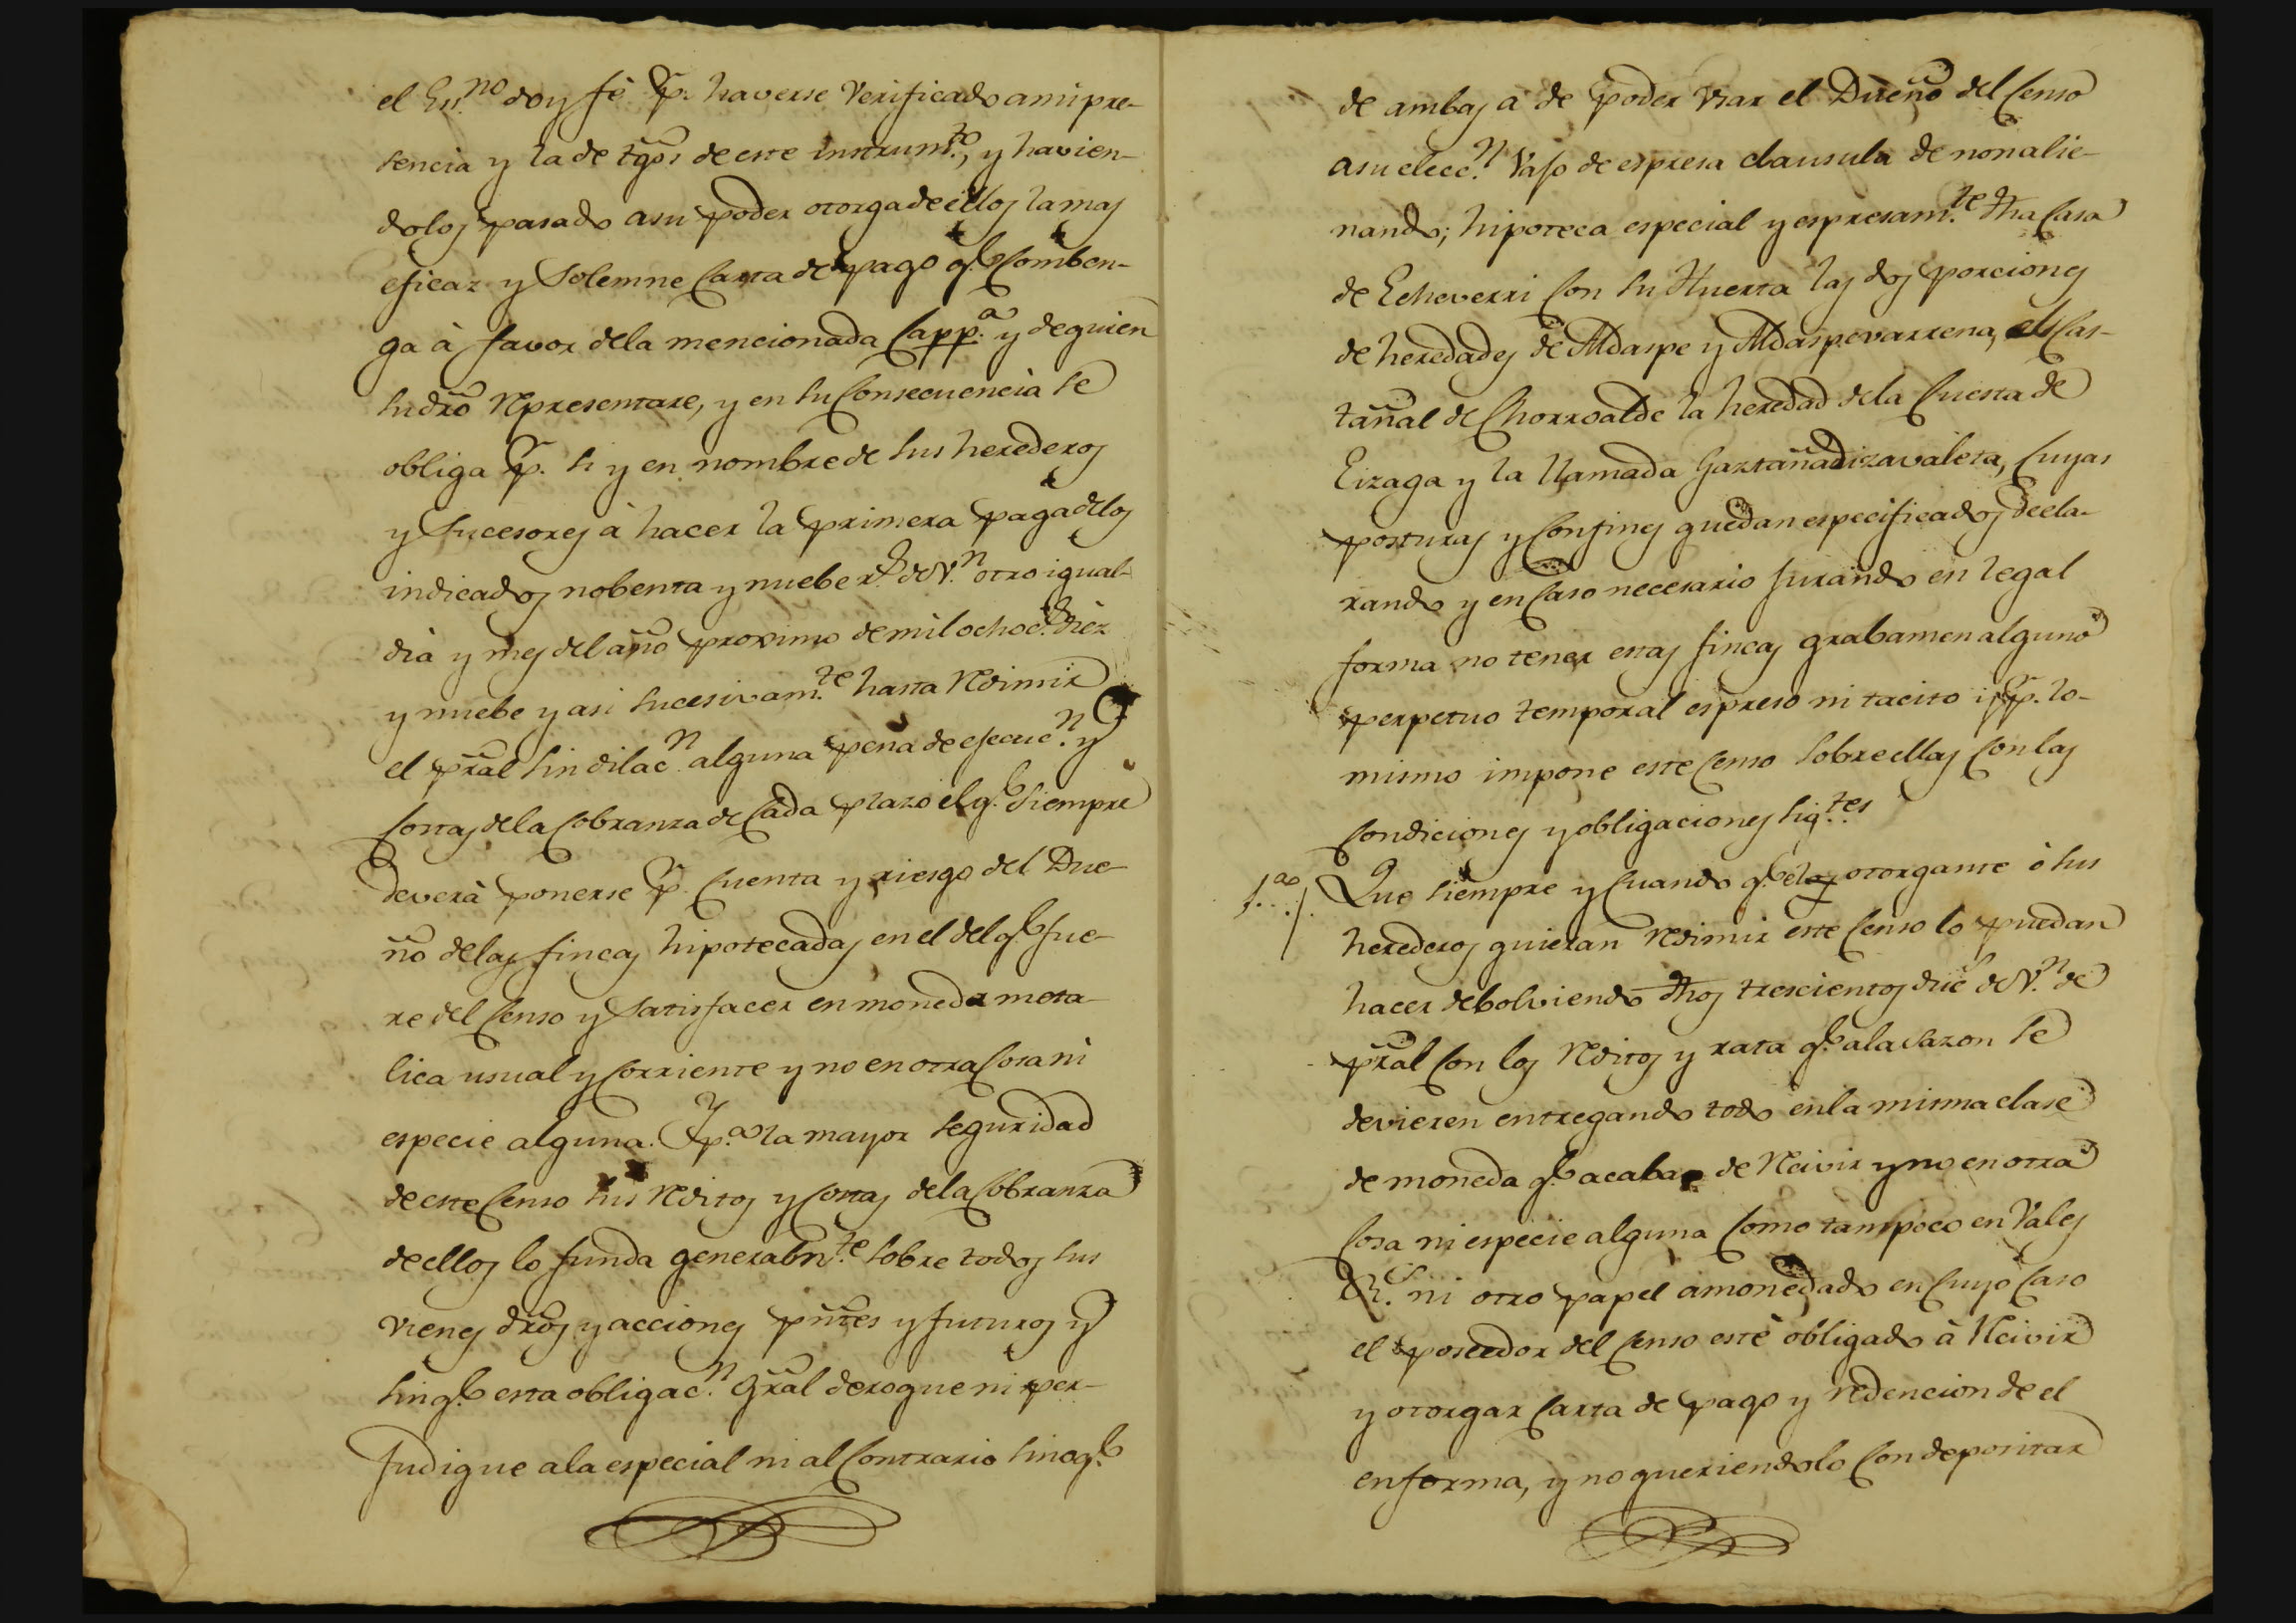 el Es.no doy fé pr. haverse Verificado a mi pre-
sencia y la de tgos de este instrum.to, y havien-
dolos pasado a su poder otorga de ellos la mas
eficaz y Solemne Carta de pago q.e Comben-
ga à favor dela mencionada Capp.a y de quien
su dro Representare, y en su Consecuencia se
obliga pr. si y en nombre de sus herederos
y Sucesores à hacer la primera paga delos
indicados nobenta y nuebe r.s de V.n otro igual
dia y mes del año proximo de mil ochoc.s diez
y nuebe y asi sucesivam.te hasta Redimir
el pral sin dilac.n alguna pena de ejecuc.n y
Costas dela Cobranza de Cada plazo el q.e Siempre
deverà ponerse pr. Cuenta y riesgo del Due-
ño delas fincas hipotecadas en el del q.e fue-
re del Censo y Satisfacer en moneda meta-
lica usual y Corriente y no en otra Cosa ni
especie alguna. Y p.a la mayor seguridad
de este Censo sus Reditos y Costas dela Cobranza
de ellos lo funda generalm.te sobre todos sus
vienes dros y acciones pntes y futuros y
sin q.e esta obligac.n Gral derogue ni per-
Judique a la especial ni al Contrario sino q.e
de ambas a de poder Usar el Dueño del Censo
a su elecc.n Vajo de espresa clausula de nonalie-
nando; hipoteca especial y espresam.te dha Casa
de Echeverri Con su Huerta las dos porciones
de heredades de Aldaspe y Aldaspevarrena, el Cas-
tañal de Chorroalde la heredad dela Cuesta de
Eizaga y la llamada Gaztañadizavaleta, Cuyas
posturas y Confines quedan especificados decla-
rando y en Caso necesario Jurando en legal
forma no tener estas fincas grabamen alguno
perpetuo temporal espreso ni tacito i pr. lo-
mismo impone este Censo Sobre ellas Con las
Condiciones y obligaciones sig.tes
1.a Que siempre y Cuando q.e el otorgante ò sus
herederos quieran Redimir este Censo lo puedan
hacer debolviendo dhos trescientos duc.s de V.n de
pral Con los Reditos y rata q.e a la Sazon se
devieren entregando todo en la misma clase
de moneda q.e acaba de Recivir y no en otra
Cosa ni especie alguna Como tampoco en Vales
R.s ni otro papel amonedado en Cuyo Caso
el poseedor del Censo estè obligado à Recivir
y otorgar Carta de pago y redencion de el
en forma, y no queriendolo Con depositar